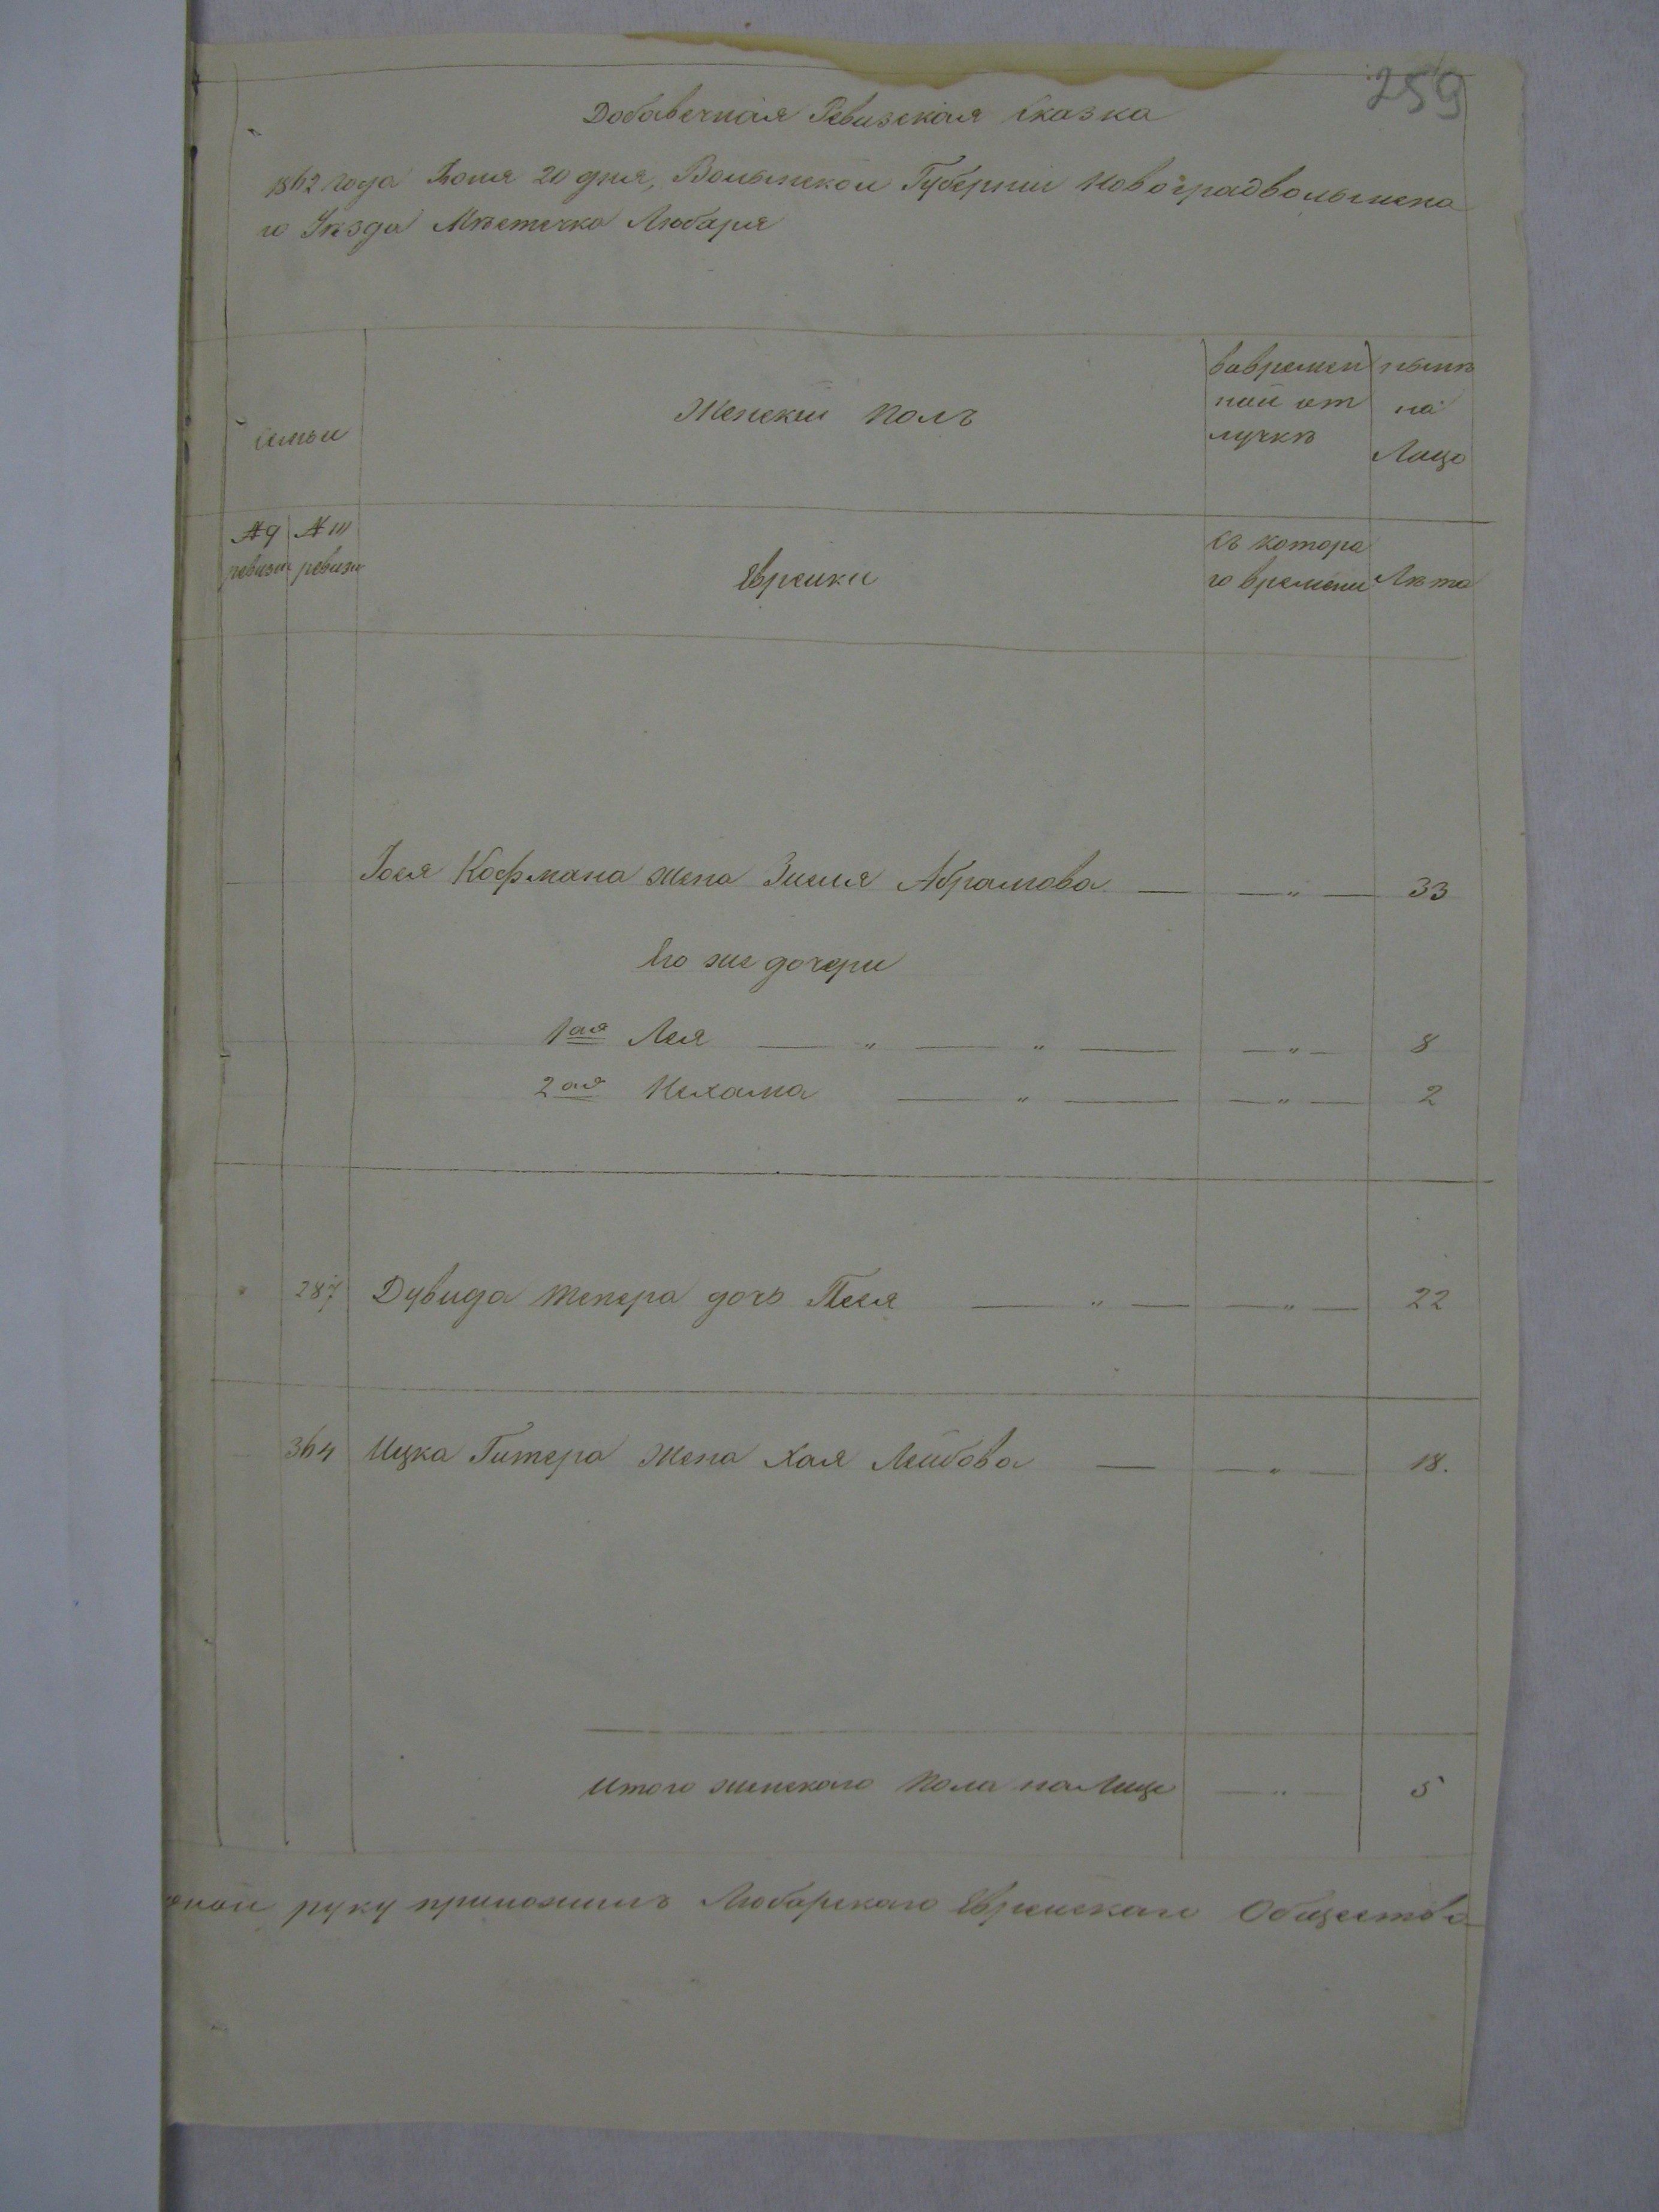 259
Добавечная Ревизская Сказка
1862 года Іюня 20 дня, Волынской Губернии Новоградволынска
го Уѣзда Мѣстечка Любаря
Семьи
Женский Полъ
вовремен
ной от
лучкѣ
нынѣ
на
Лицо
№ 9
ревизи
№ 10
ревизи
Еврейки
съ котора
го времени
Лѣта
Іося Кофмана жена Зися Абрамова — — „ — 33
Его же дочери
1ая Лея — „ — „ — — „ — 8
2ая Нехама — „ — — „ — 2
287 Дувида Тепера дочь Песя — „ — — „ — 22
364 Ицка Гитера Жена Хая Лейбова — — „ — 18.
Итого женскаго Пола наЛице — „ — 5
руку приложилъ Любарскаго Еврейскаго Общества